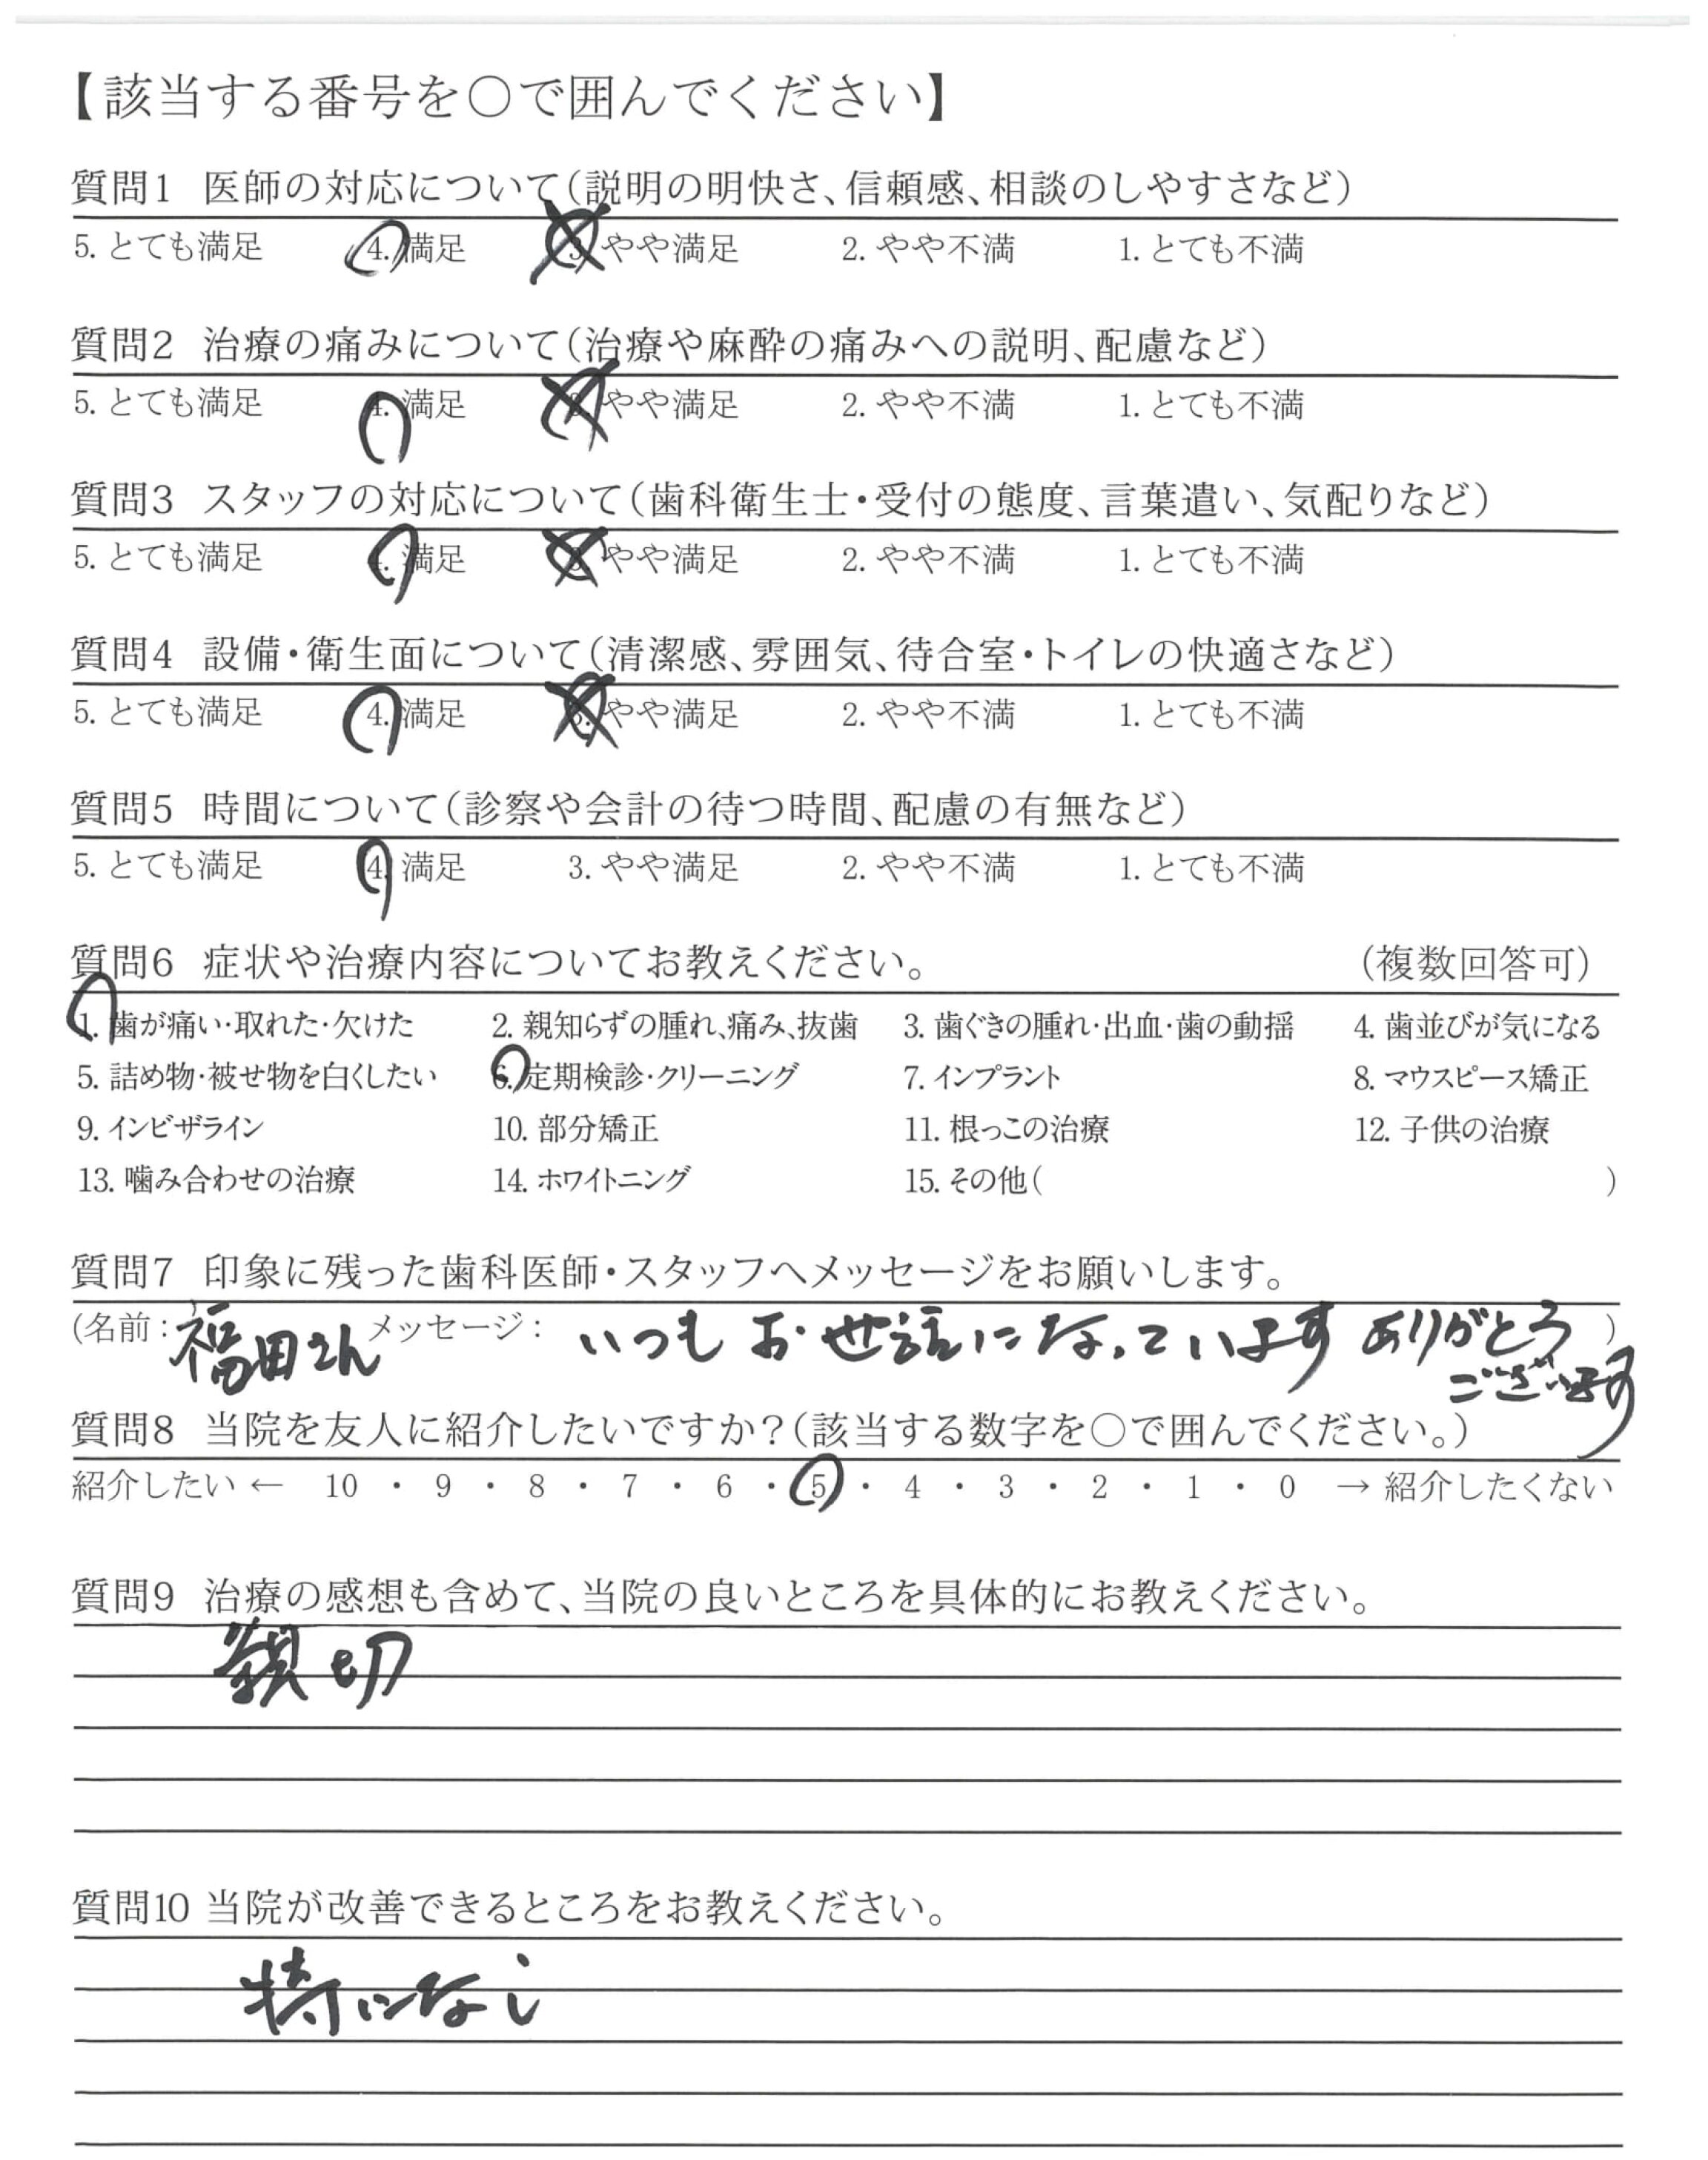 【該当する番号を○で囲んでください】
質問1 医師の対応について(説明の明快さ、信頼感、相談のしやすさなど)
5. とても満足 4. 満足 3. やや満足 2. やや不満 1. とても不満
質問2 治療の痛みについて(治療や麻酔の痛みへの説明、配慮など)
5. とても満足 4. 満足 3. やや満足 2. やや不満 1. とても不満
質問3 スタッフの対応について(歯科衛生士・受付の態度、言葉遣い、気配りなど)
5. とても満足 4. 満足 3. やや満足 2. やや不満 1. とても不満
質問4 設備・衛生面について(清潔感、雰囲気、待合室・トイレの快適さなど)
5. とても満足 4. 満足 3. やや満足 2. やや不満 1. とても不満
質問5 時間について(診察や会計の待つ時間、配慮の有無など)
5. とても満足 4. 満足 3. やや満足 2. やや不満 1. とても不満
質問6 症状や治療内容についてお教えください。 (複数回答可)
1. 歯が痛い・取れた・欠けた 2. 親知らずの腫れ、痛み、抜歯 3. 歯ぐきの腫れ・出血・歯の動揺 4. 歯並びが気になる
5. 詰め物・被せ物を白くしたい 6. 定期検診・クリーニング 7. インプラント 8. マウスピース矯正
9. インビザライン 10. 部分矯正 11. 根っこの治療 12. 子供の治療
13. 噛み合わせの治療 14. ホワイトニング 15. その他( )
質問7 印象に残った歯科医師・スタッフへメッセージをお願いします。
(名前:福田さん メッセージ: いつもお世話になっています ありがとう )
ございます
質問8 当院を友人に紹介したいですか?(該当する数字を○で囲んでください。)
紹介したい ← 10 ・ 9 ・ 8 ・ 7 ・ 6 ・ 5 ・ 4 ・ 3 ・ 2 ・ 1 ・ 0 → 紹介したくない
質問9 治療の感想も含めて、当院の良いところを具体的にお教えください。
親切
質問10 当院が改善できるところをお教えください。
特になし